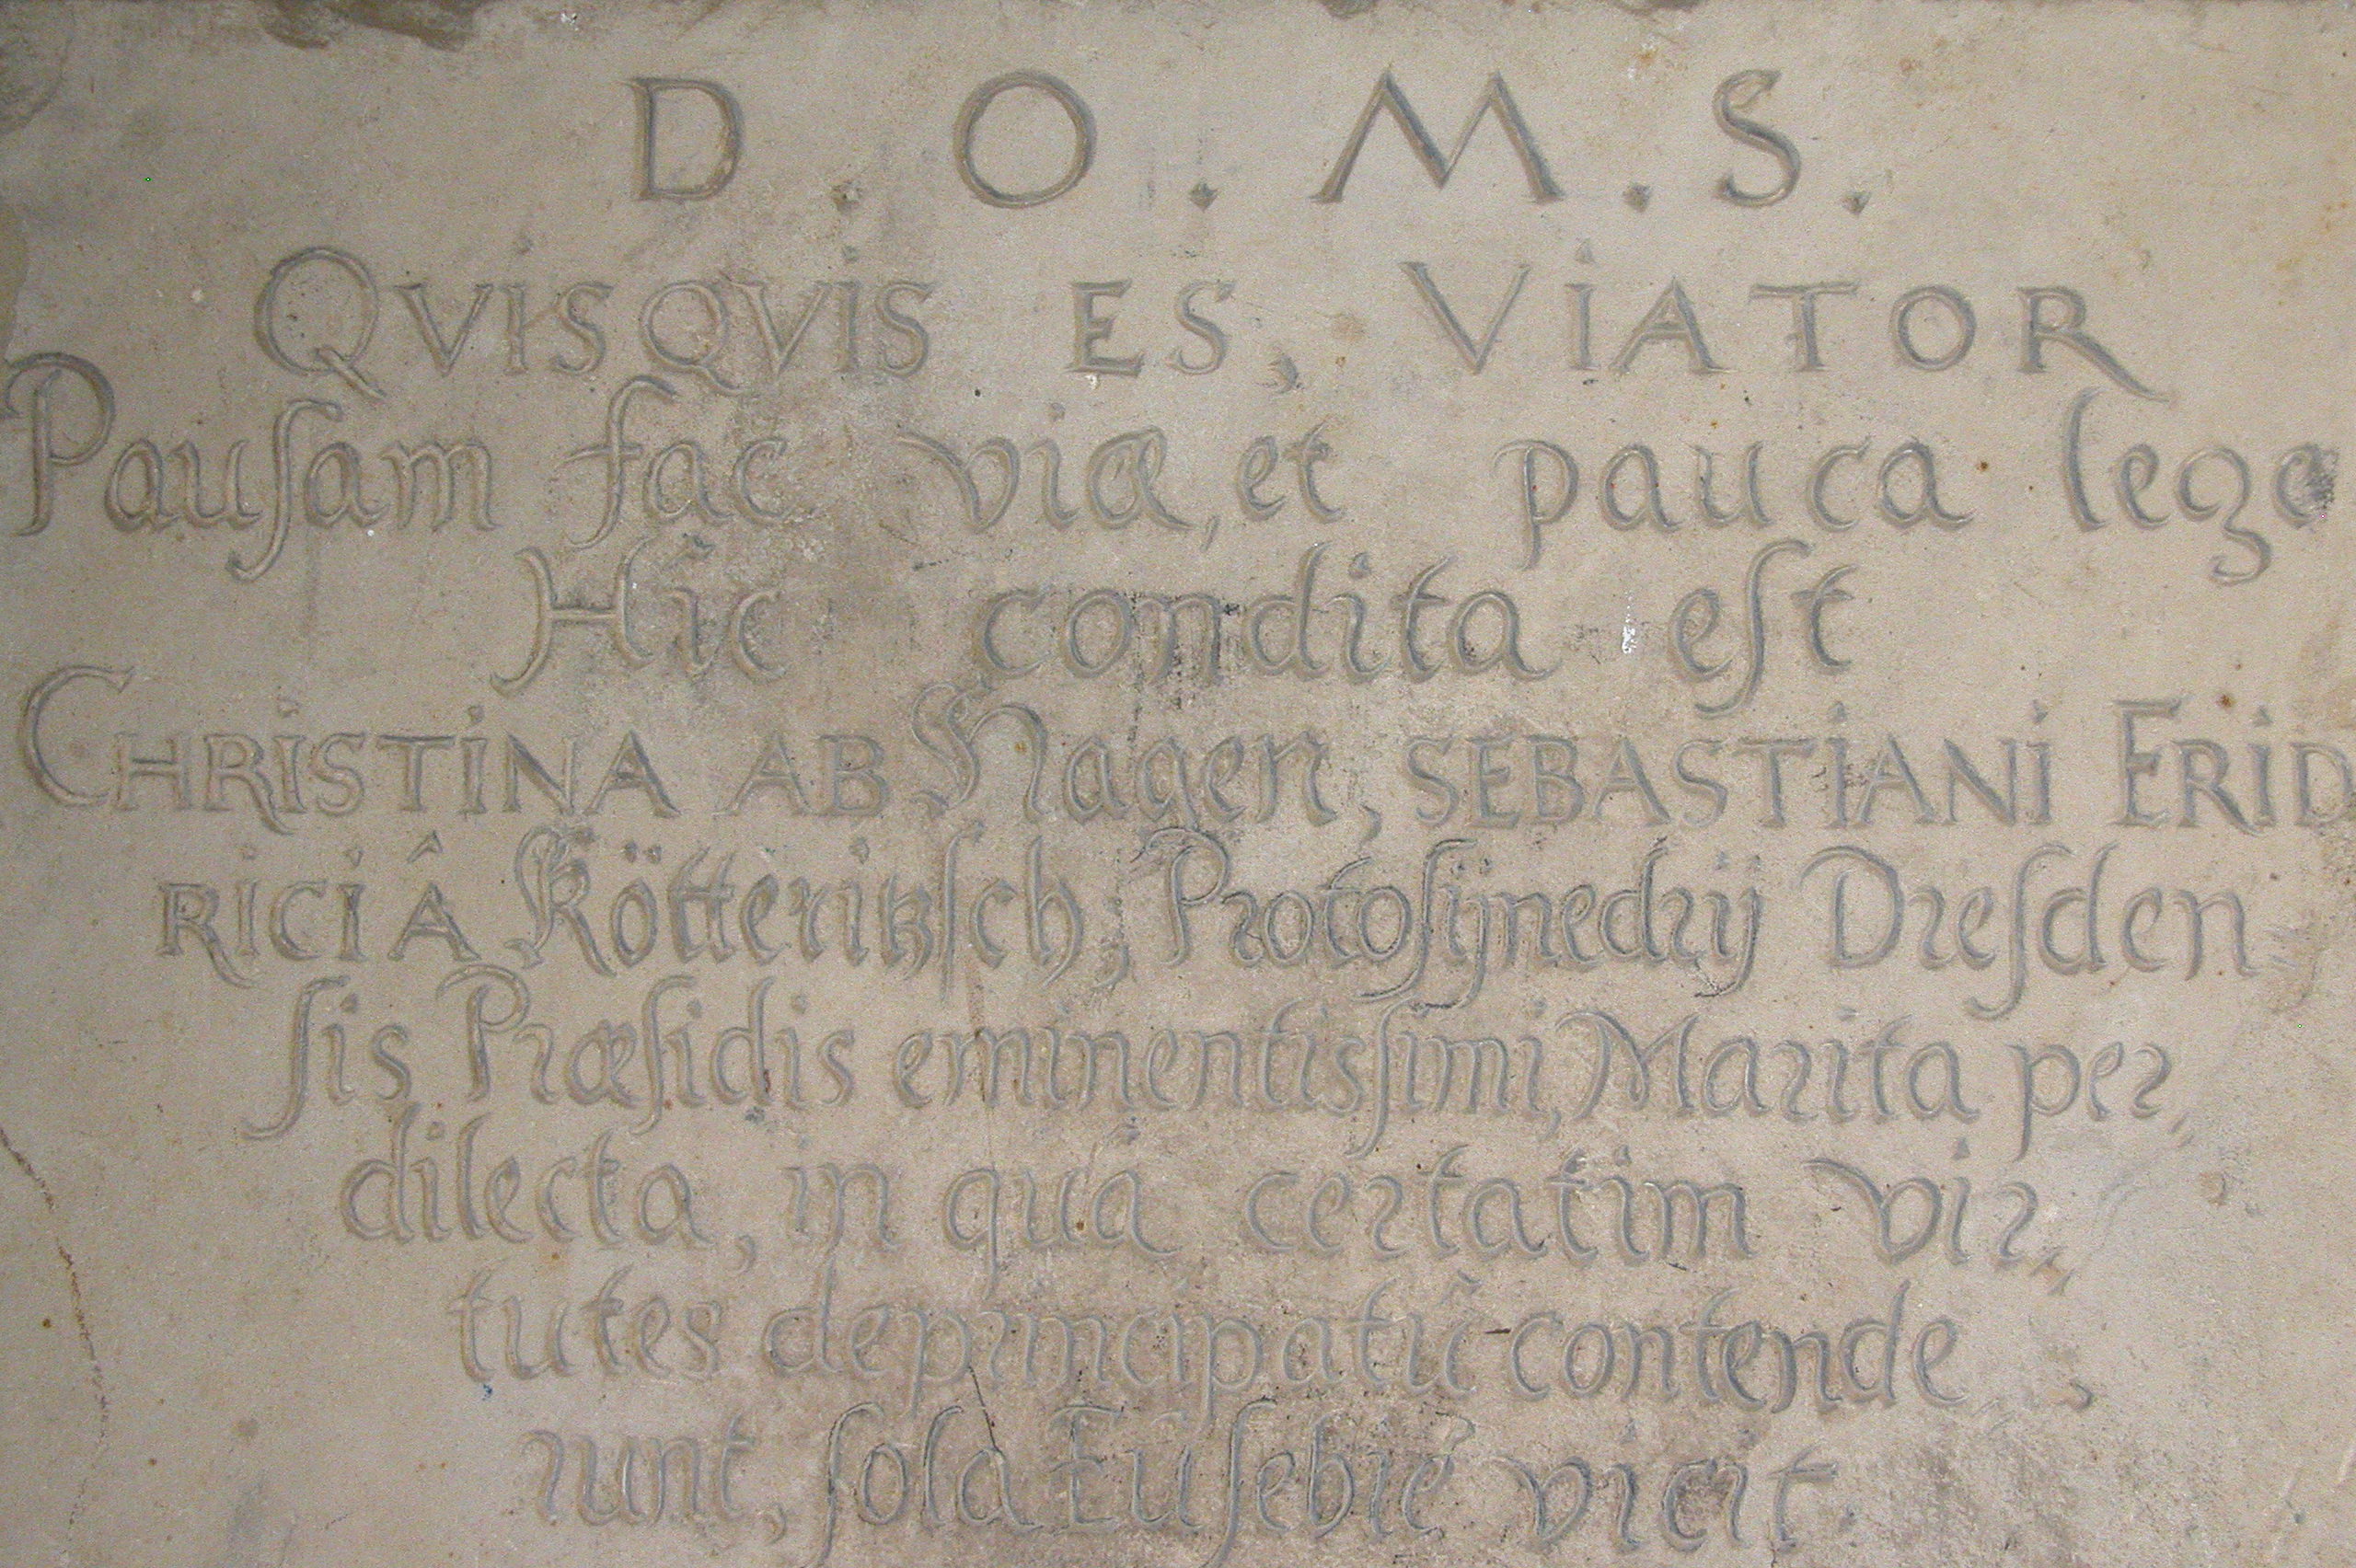 D . O . M . S .
QVISQVIS ES, VIATOR
Pauſam fac viæ, et pauca lege
Hic condita eſt
CHRISTINA AB Hagen, SEBASTIANI FRID
RICI Â Kötteritzſch, Protoſÿnedrij Dreſden,
ſis Præſidis eminentisſimi, Marita per,
dilecta, in quâ certatim vir,
tutes de principatũ contende,
runt, ſola Euſebie vicit.